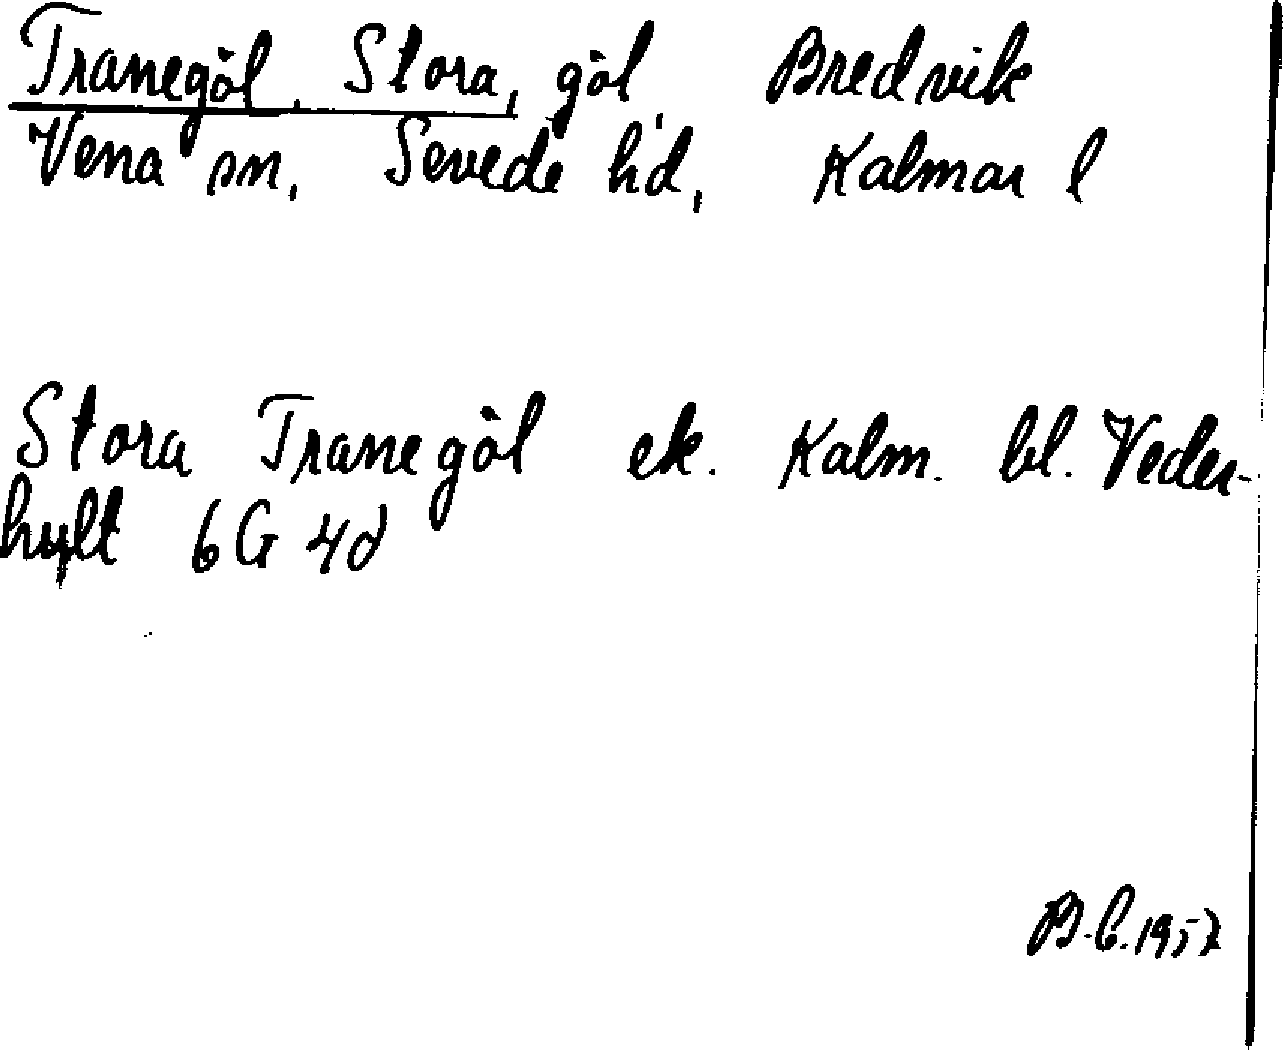 Tranegöl, Stora, göl, Bredvik
Vena sn, Sevede hd, Kalmar l
Stora Tranegöl ek. Kalm. bl. Veder-
hylt 6G 4d
B.C. 1957